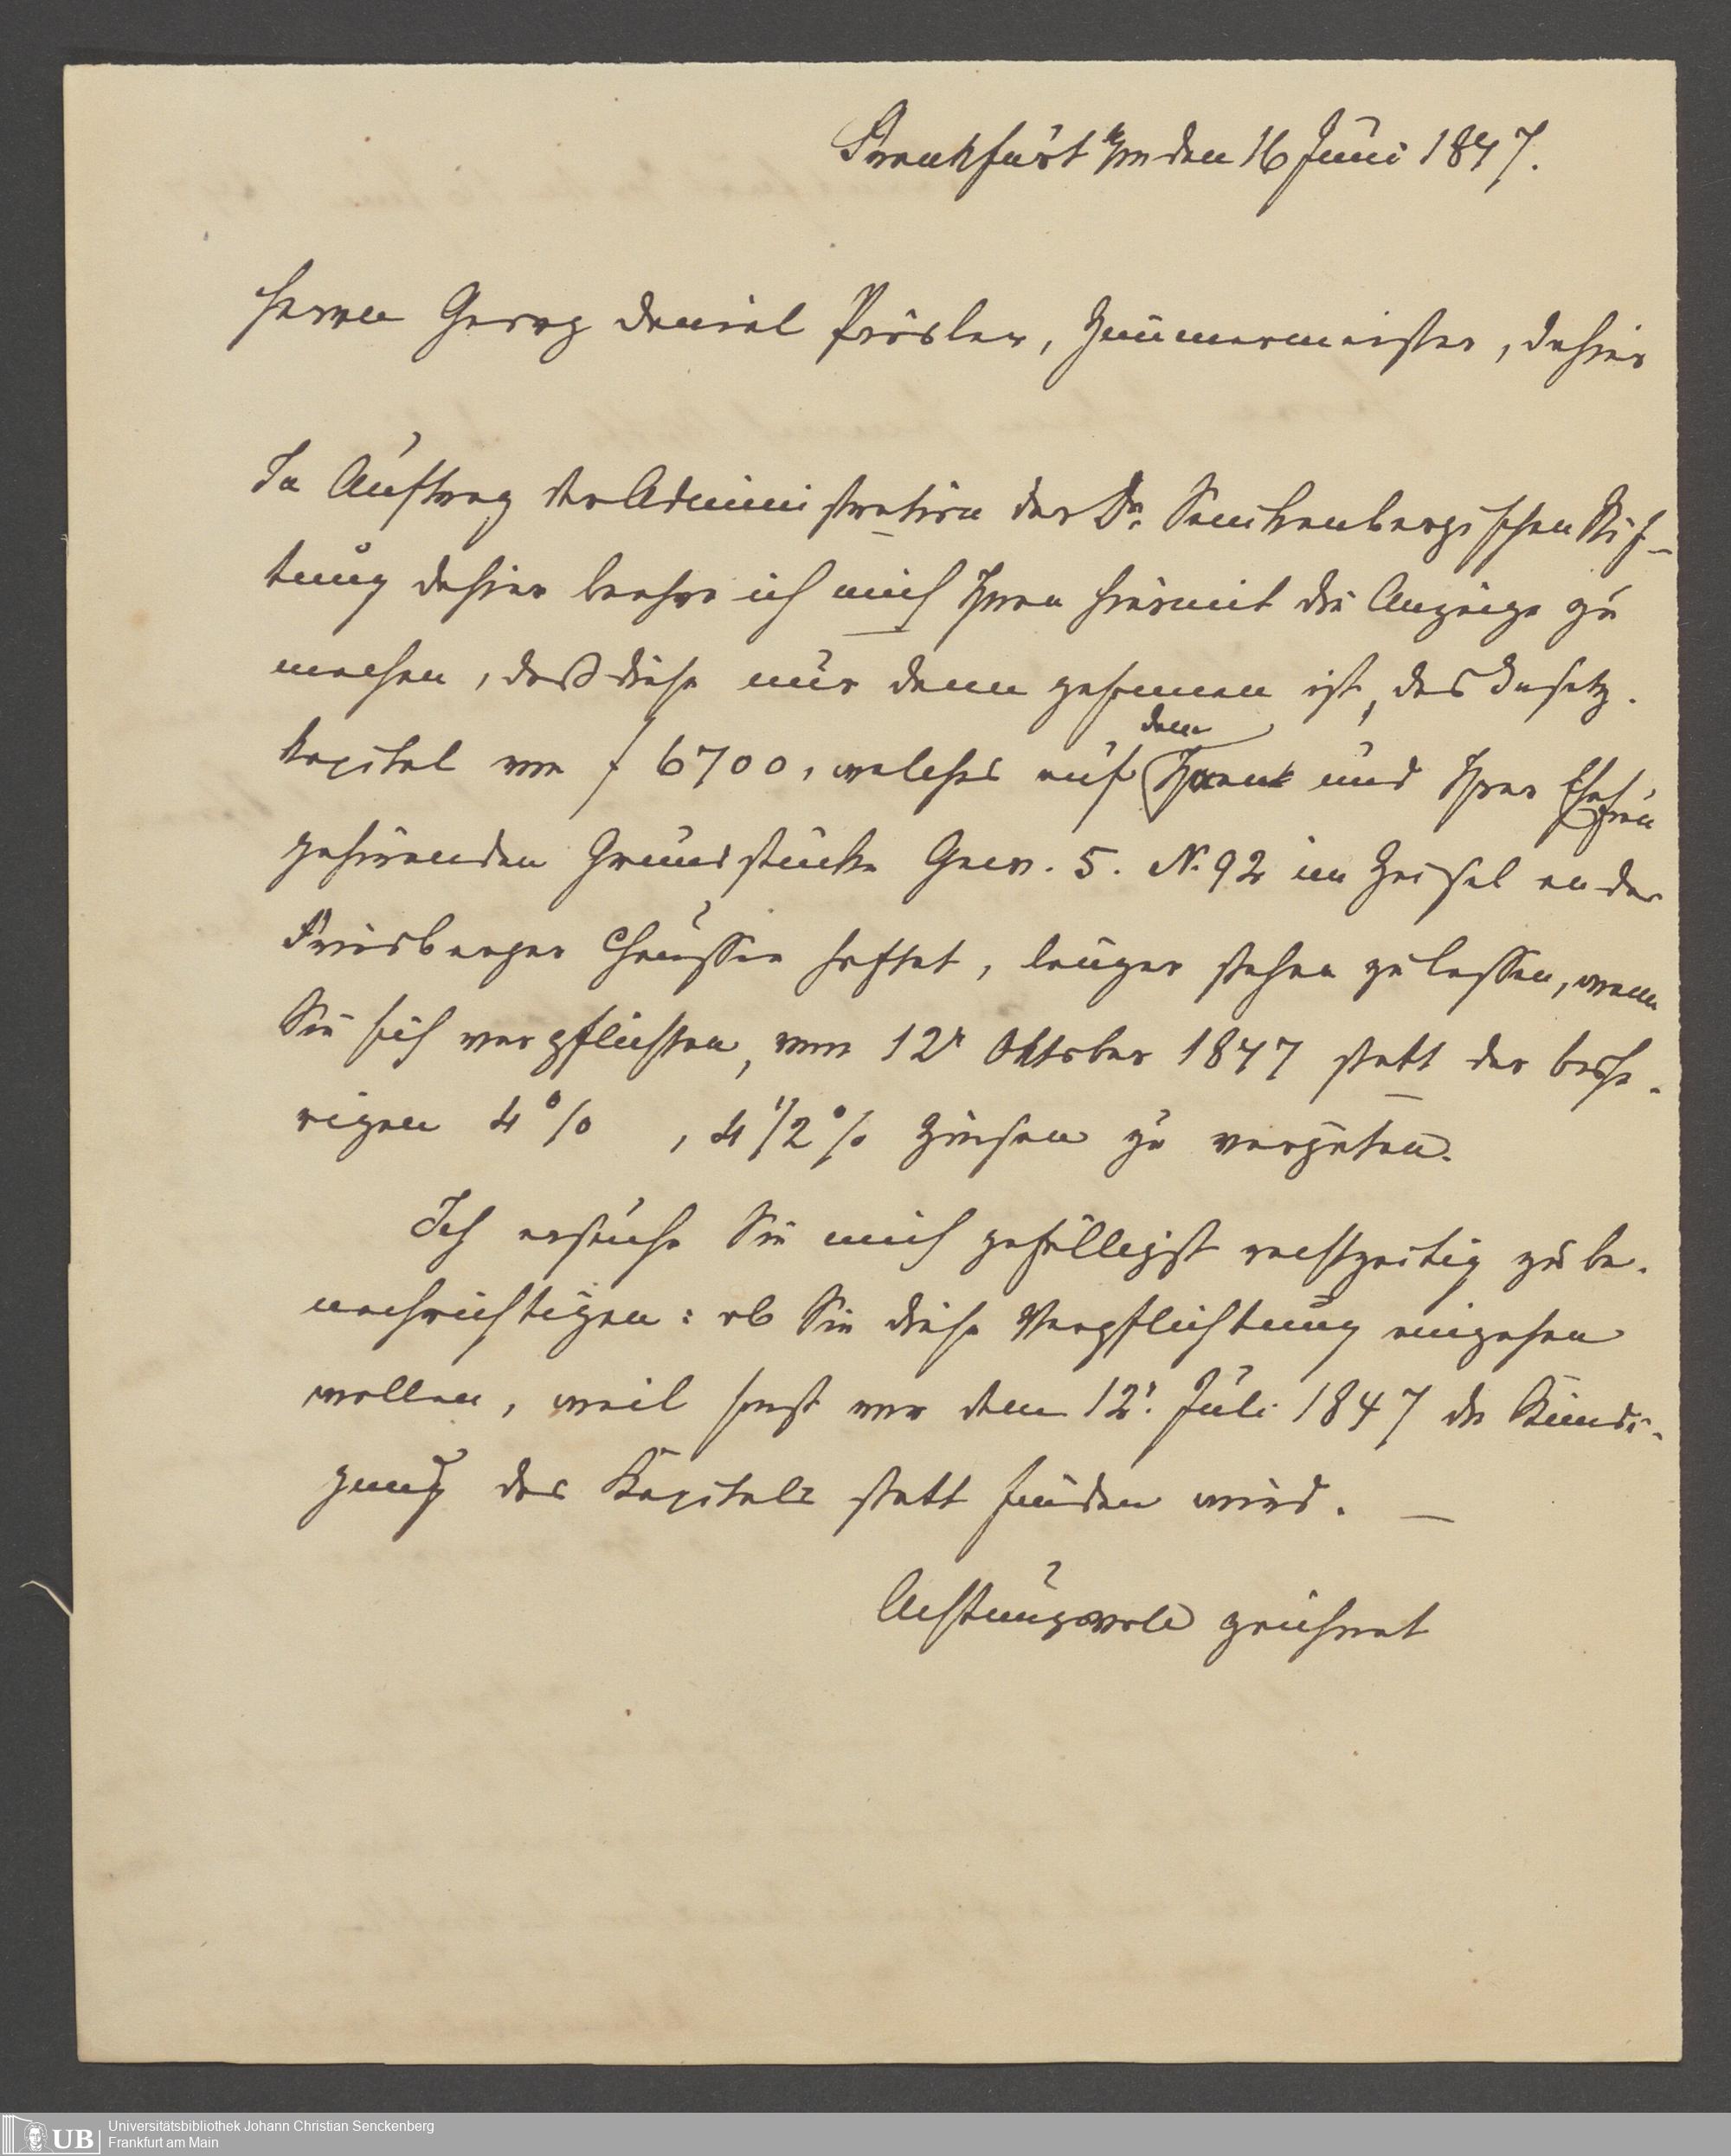 Frankfurt a/m den 16 Juni 1847.
Herrn Georg Daniel Prösler, Zimmermeister, dahier
In Auftrag der Administration der Dr. Senckenbergischen Stif-
tung dahier beehre ich mich Ihnen hiermit die Anzeige zu
machen, daß diese nur dann gesonnen ist, das Insatz-
kapital von f 6700, welches auf dem Ihnen und Ihrer Ehefrau
gehörenden Grundstücke Gew. 5. N. 92 im Geisel an der
Friedberger Chaussee haftet, länger stehen zu lassen, wenn
Sie sich verpflichten, vom 12r Oktober 1847 statt der bishe-
rigen 4 %, 4 1/2 % Zinsen zu vergüten.
Ich ersuche Sie mich gefälligst rechtzeitig zu be-
nachrichtigen: ob Sie diese Verpflichtung eingehen
wollen, weil sonst vor dem 12r. Juli 1847 die Kündi-
gung des Kapitals statt finden wird.
Achtungsvoll zeichnet
UB Universitätsbibliothek Johann Christian Senckenberg
Frankfurt am Main